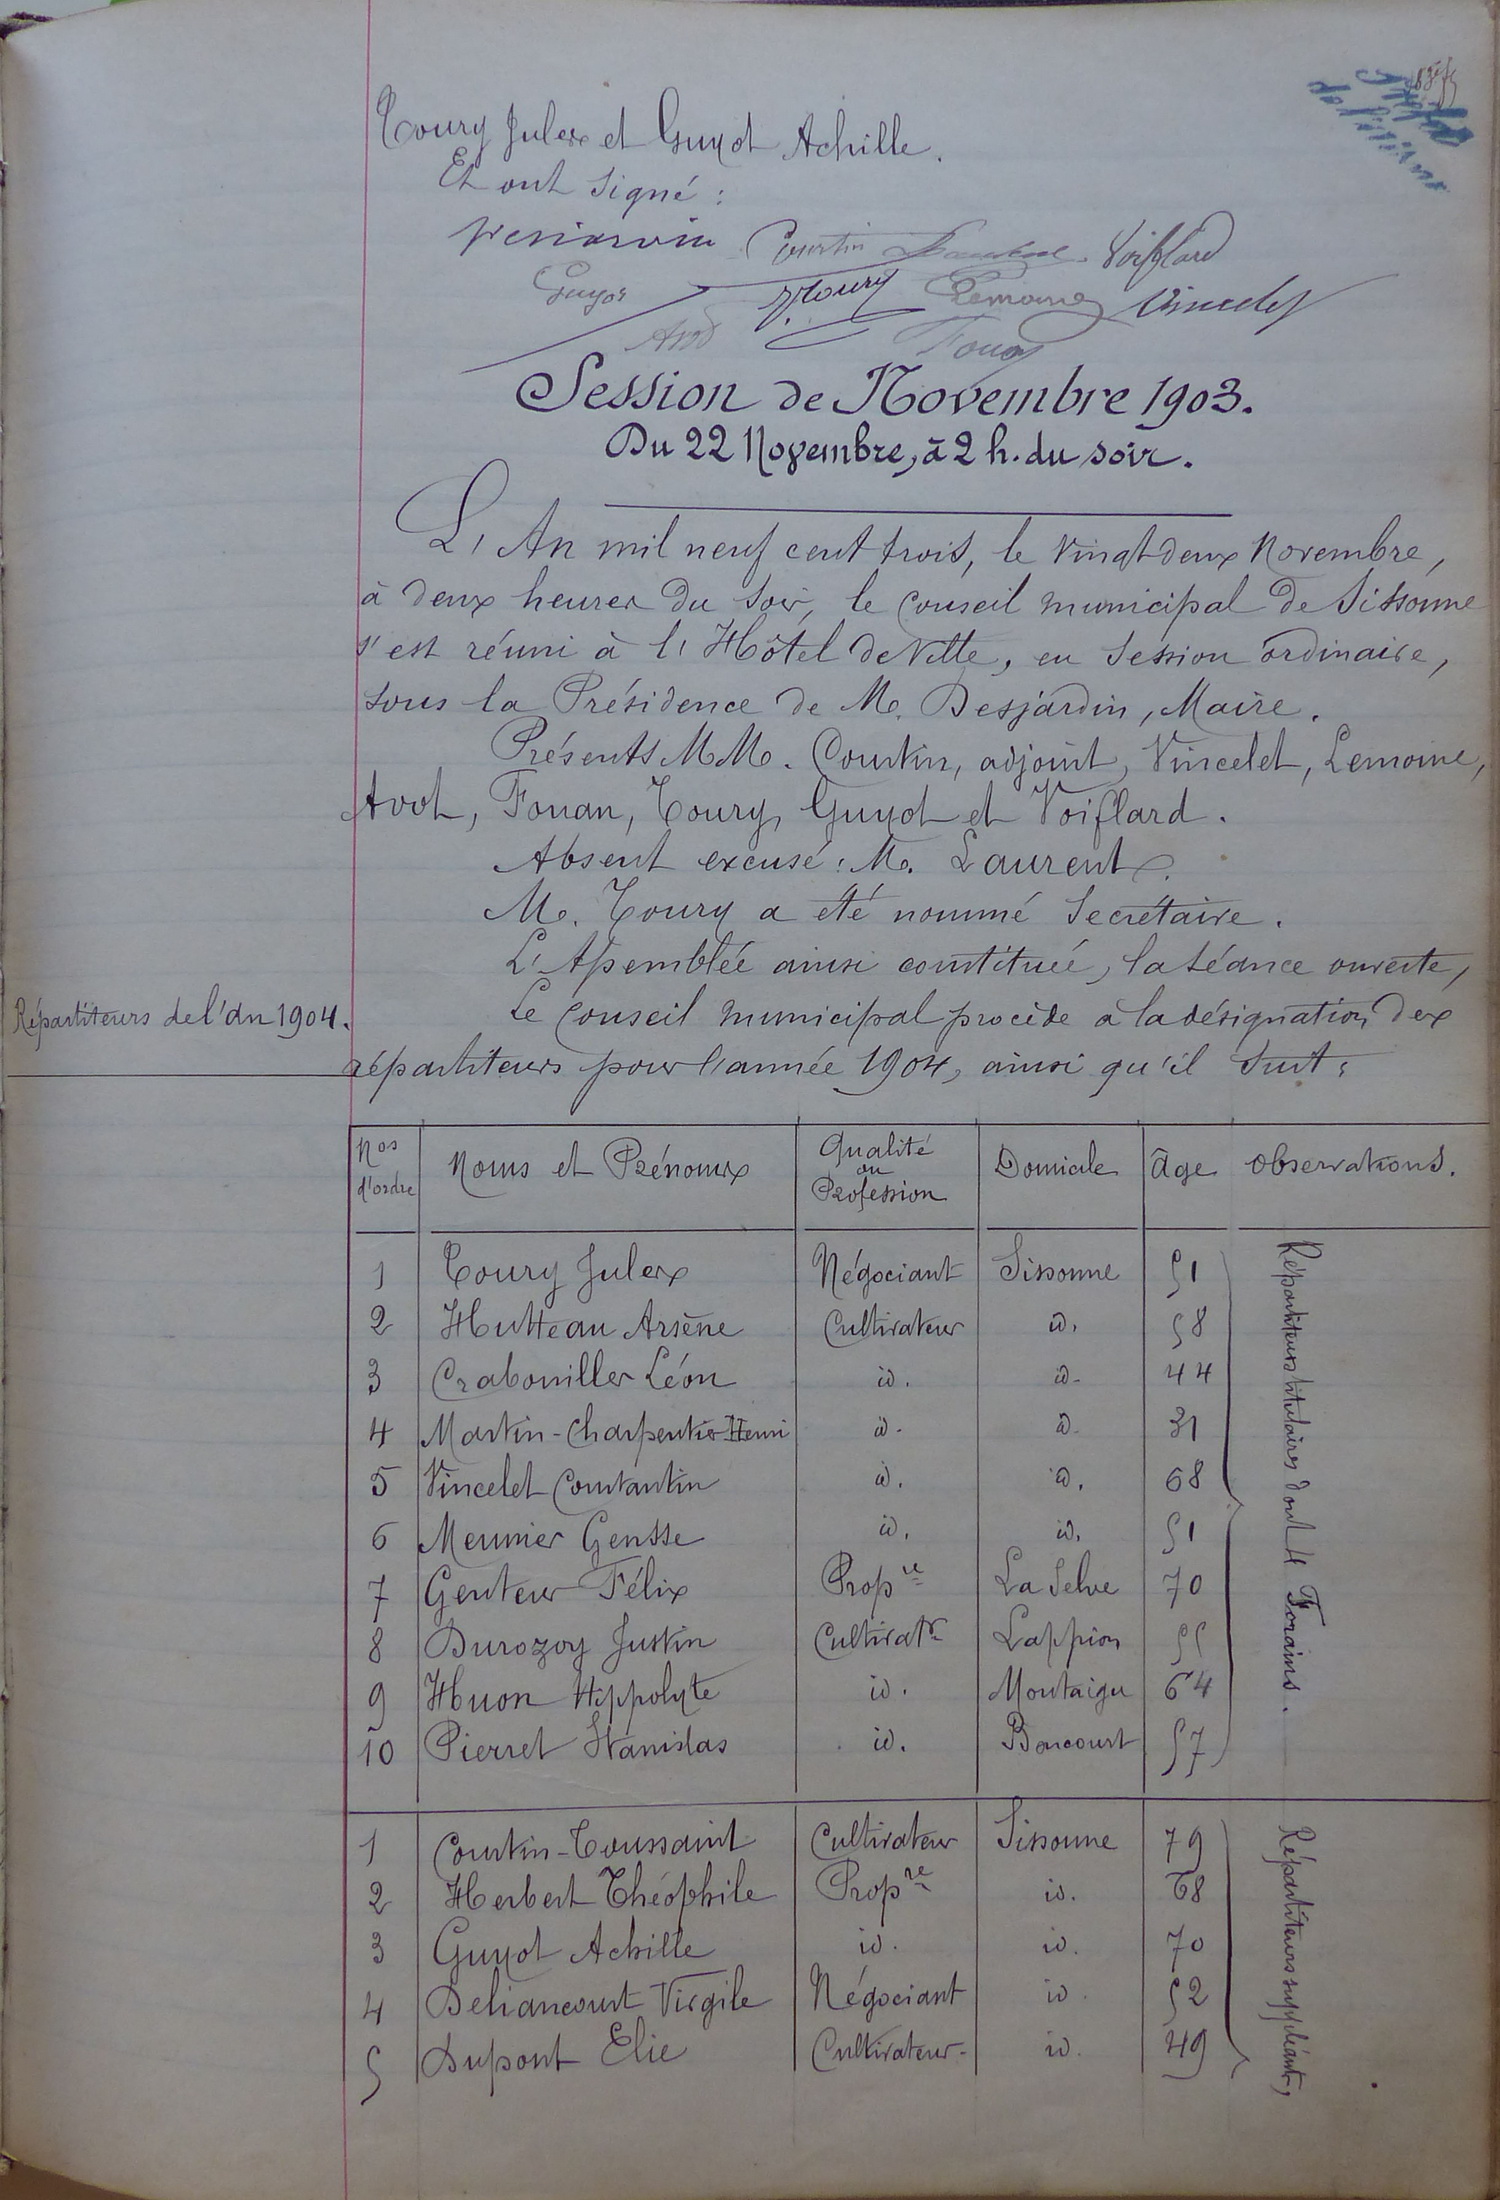 Toury Jules et Guyot Achille.
Et ont signé :
Courtin Voifflard
Guyot J. Toury Lemoine Vincelet
Avot Fouan
Session de Novembre 1903.
Du 22 Novembre, à 2 h. du soir.
L'An mil neuf cent trois, le vingt deux Novembre,
à deux heures du soir, le Conseil municipal de Sissonne
s'est réuni à l'Hôtel de Ville, en session ordinaire,
sous la Présidence de M. Desjardin, Maire.
Présents MM. Courtin, adjoint, Vincelet, Lemoine,
Avot, Fouan, Toury, Guyot et Voiflard.
Absent excusé : M. Laurent.
M. Toury a été nommé Secrétaire.
L'Assemblée ainsi constituée, la séance ouverte,
Répartiteurs de l'an 1904.
Le Conseil municipal procède à la désignation des
répartiteurs pour l'année 1904, ainsi qu'il suit :
Nos d'ordre | Noms et Prénoms | Qualité ou Profession | Domicile | âge | observations.
1 Toury Jules Négociant Sissonne 51
2 Hutteau Arsène Cultivateur id. 58
3 Crabouiller Léon id. id. 44
4 Martin-Charpentier Henri id. id. 31
5 Vincelet Constantin id. id. 68
6 Meunier Gensse id. id. 51
7 Genteur Félix Propre La Selve 70
8 Durozoy Justin Cultivatr Lappion 55
9 Huon Hippolyte id. Montaigu 64
10 Pierret Stanislas id. Boncourt 57
Répartiteurs titulaires dont 4 Forains.
1 Courtin-Toussaint Cultivateur Sissonne 79
2 Herbert Théophile Propre id. 68
3 Guyot Achille id. id. 70
4 Déliancourt Virgile Négociant id. 52
5 Dupont Elie Cultivateur id. 49
Répartiteurs suppléants,